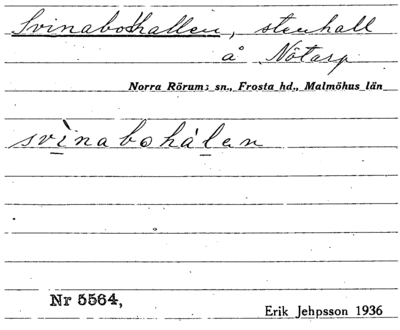 Svinabohallen, stenhall
å Nötarp
Norra Rörums sn., Frosta hd., Malmöhus län
svìnabohálen
Nr 5564,
Erik Jehpsson 1936